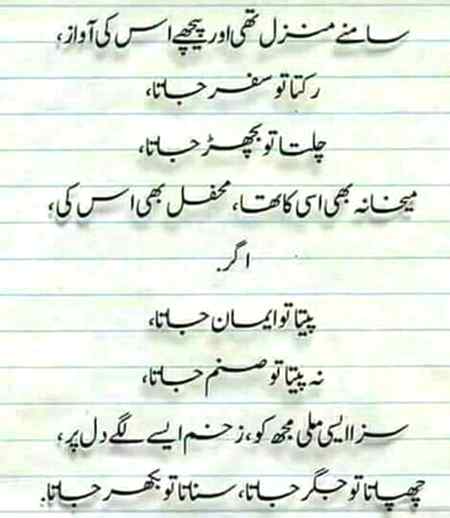 سامنے منزل تھی اور پیچھے اس کی آواز،
رکتا تو سفر جاتا،
چلتا تو بچھڑ جاتا،
میخانہ بھی اسی کا تھا، محفل بھی اس کی،
اگر.
پیتا تو ایمان جاتا،
نہ پیتا تو صنم جاتا،
سزا ایسی ملی مجھ کو، زخم ایسے لگے دل پر،
چھپاتا تو جگر جاتا، سناتا تو بکھر جاتا.